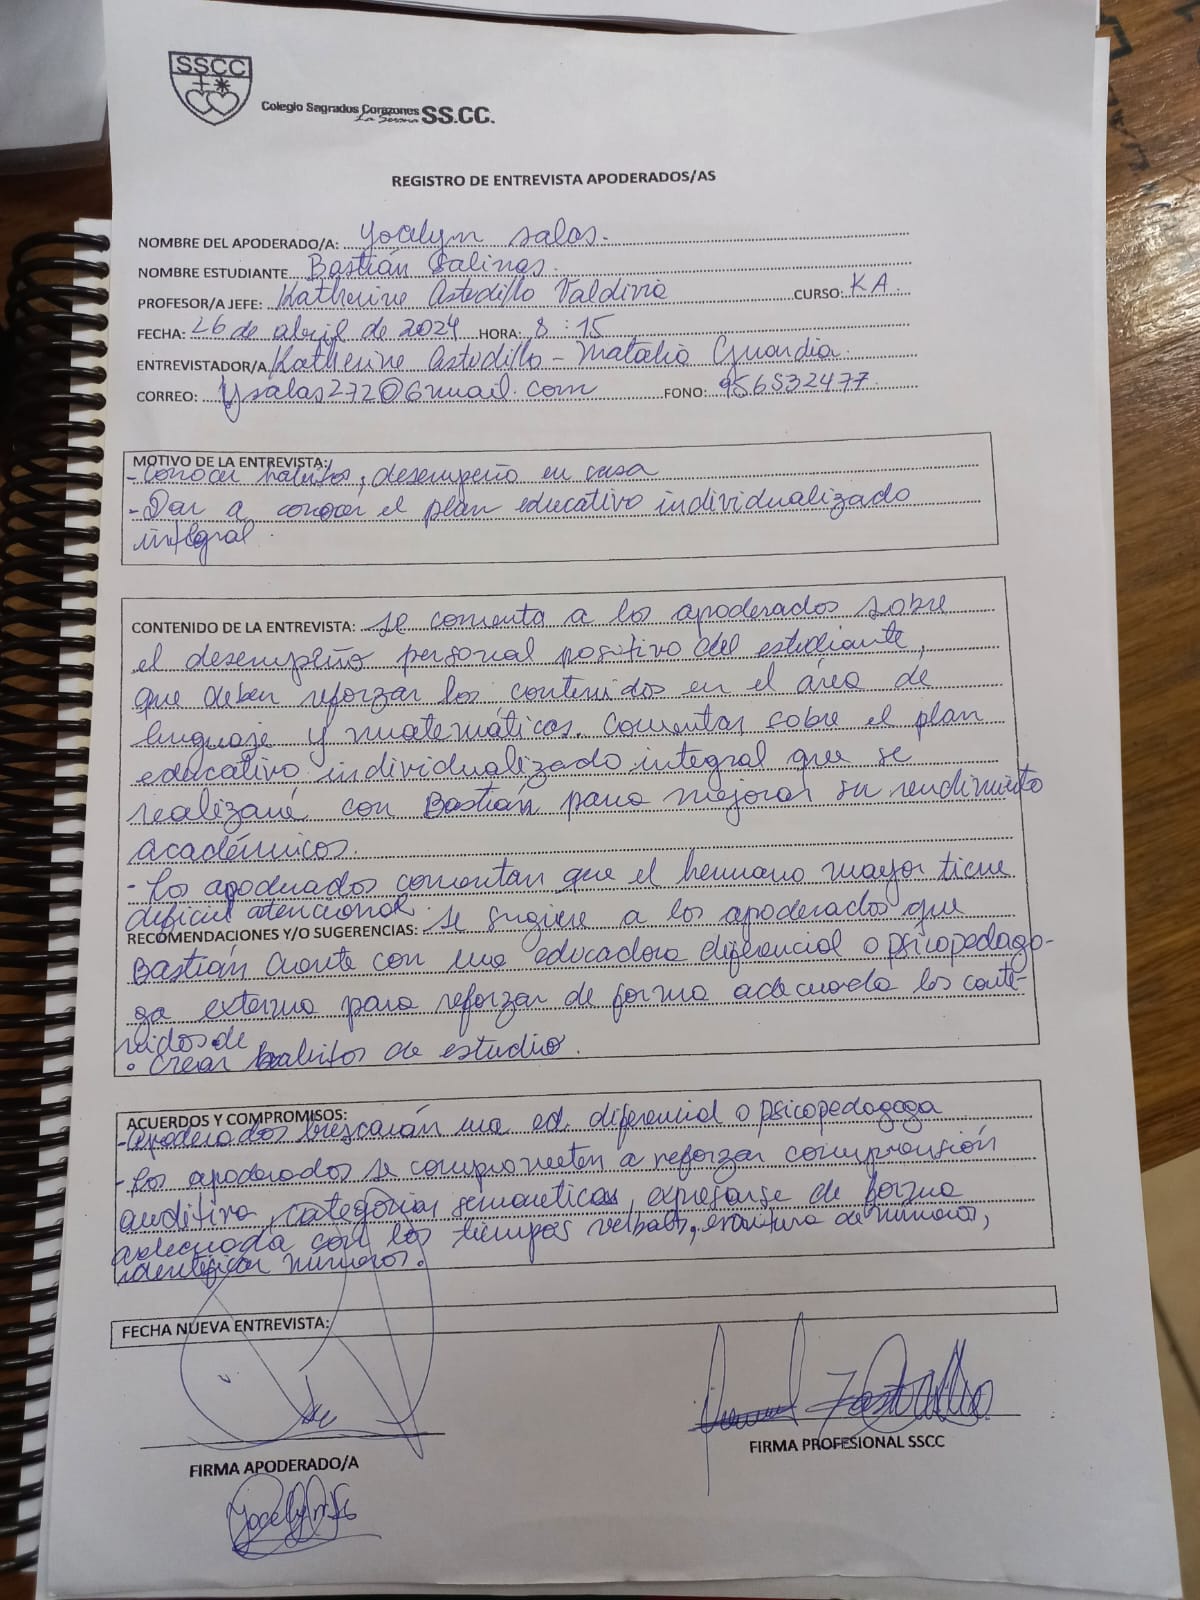 SSCC
Colegio Sagrados Corazones SS.CC.
La Serena
REGISTRO DE ENTREVISTA APODERADOS/AS
NOMBRE DEL APODERADO/A: Yocelyn Salas.
NOMBRE ESTUDIANTE Bastián Salinas.
PROFESOR/A JEFE: Katherine Astudillo Valdivia CURSO: KA.
FECHA: 26 de abril de 2024 HORA: 8:15
ENTREVISTADOR/A Katherine Astudillo - Natalia Guardia.
CORREO: Ysalas272@Gmail.com FONO: 956532477.
MOTIVO DE LA ENTREVISTA:
- Conocer habitos, desempeño en casa
- Dar a conocer el plan educativo individualizado
integral.
CONTENIDO DE LA ENTREVISTA: se comenta a los apoderados sobre
el desempeño personal positivo del estudiante,
que deben reforzar los contenidos en el área de
lenguaje y matemáticas. Comentar sobre el plan
educativo individualizado integral que se
realizará con Bastián para mejorar su rendimiento
académicos.
- Los apoderados comentan que el hermano mayor tiene
deficit atencional.
RECOMENDACIONES Y/O SUGERENCIAS: se sugiere a los apoderados que
Bastián cuente con una educadora diferencial o psicopedago-
ga externa para reforzar de forma adecuada los conte-
nidos de
• Crear habitos de estudio.
ACUERDOS Y COMPROMISOS:
- Apoderados buscarán una ed. diferencial o psicopedagoga
- Los apoderados se comprometen a reforzar comprensión
auditiva, categorias semanticas, expresarse de forma
adecuada con los tiempos verbales, escritura de números,
identificar números.
FECHA NUEVA ENTREVISTA:
FIRMA APODERADO/A
FIRMA PROFESIONAL SSCC